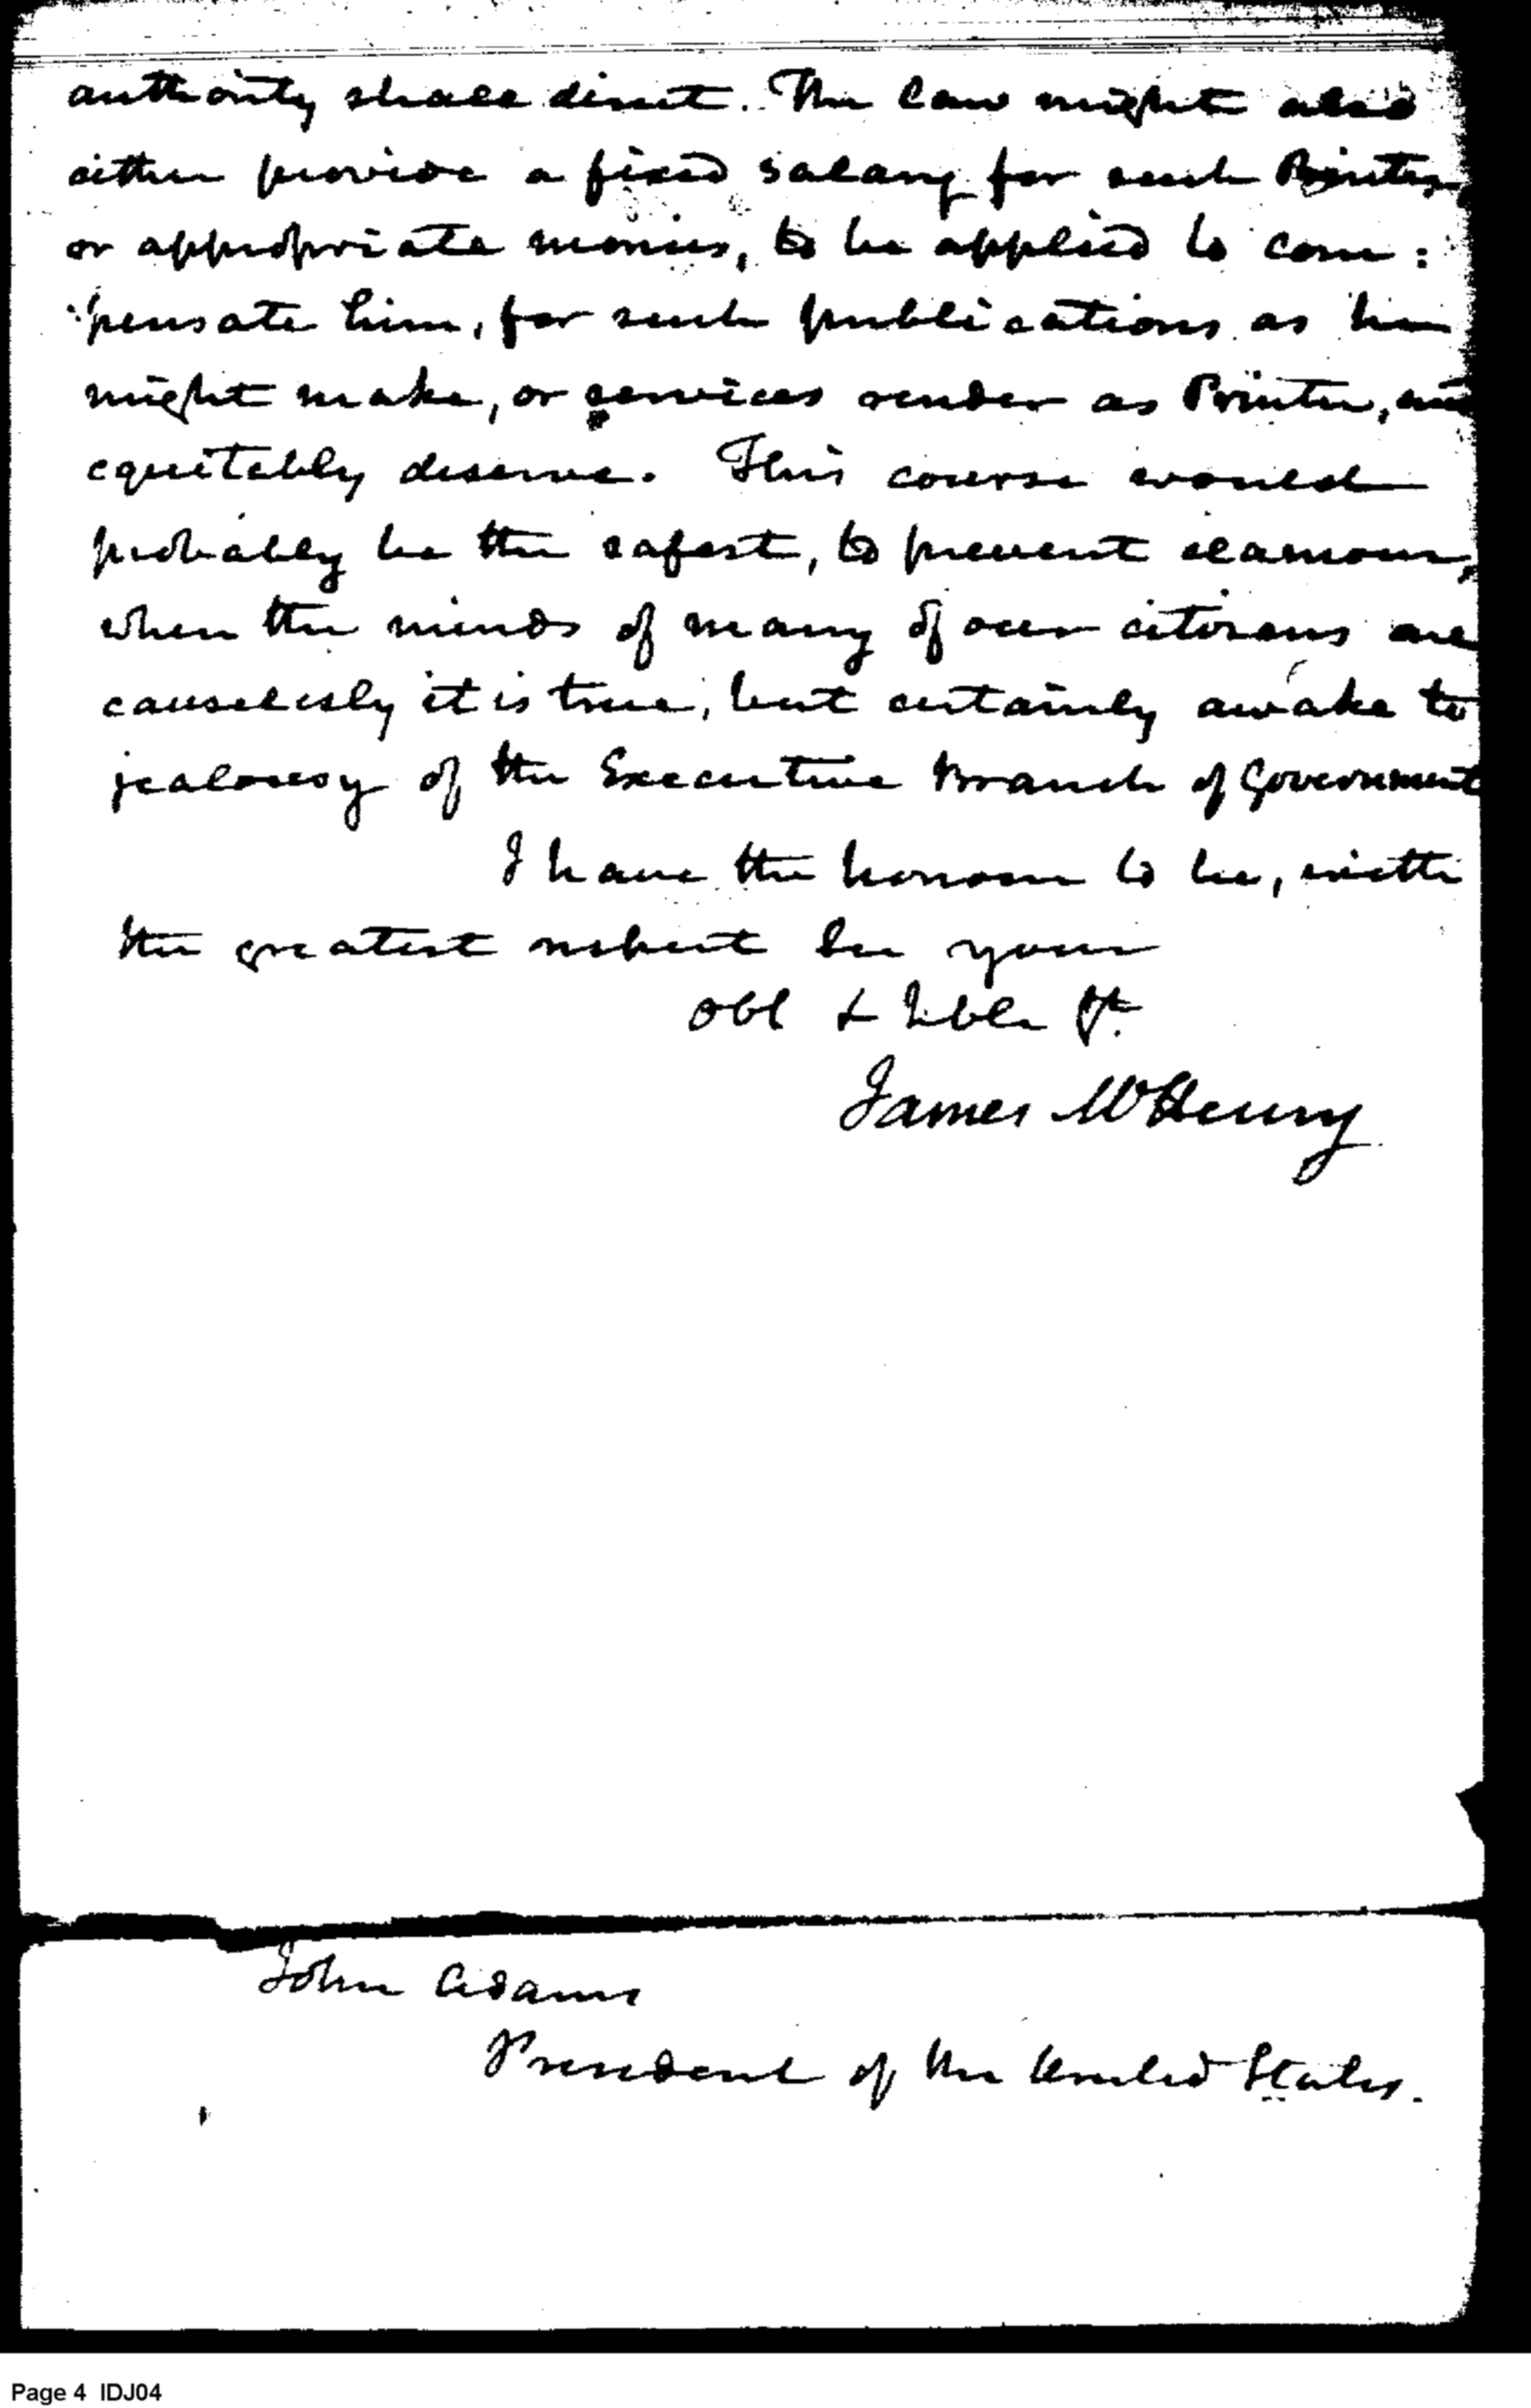 authority shall direct. The law might also
either provide a fixed salary for such Printer,
or appropriate monies, to be applied to com:
:pensate him, for such publications as he
might make, or services render as Printer, and
equitably deserve. This course would
probably be the safest, to prevent clamour,
when the minds of many of our citizens are
causelessly it is true, but certainly awake to
jealousy of the Executive Branch of Government
I have the honour to be, with
the greatest respect Sir your
obt & hble St.
James McHenry
John Adams
President of the United States.
Page 4 IDJ04